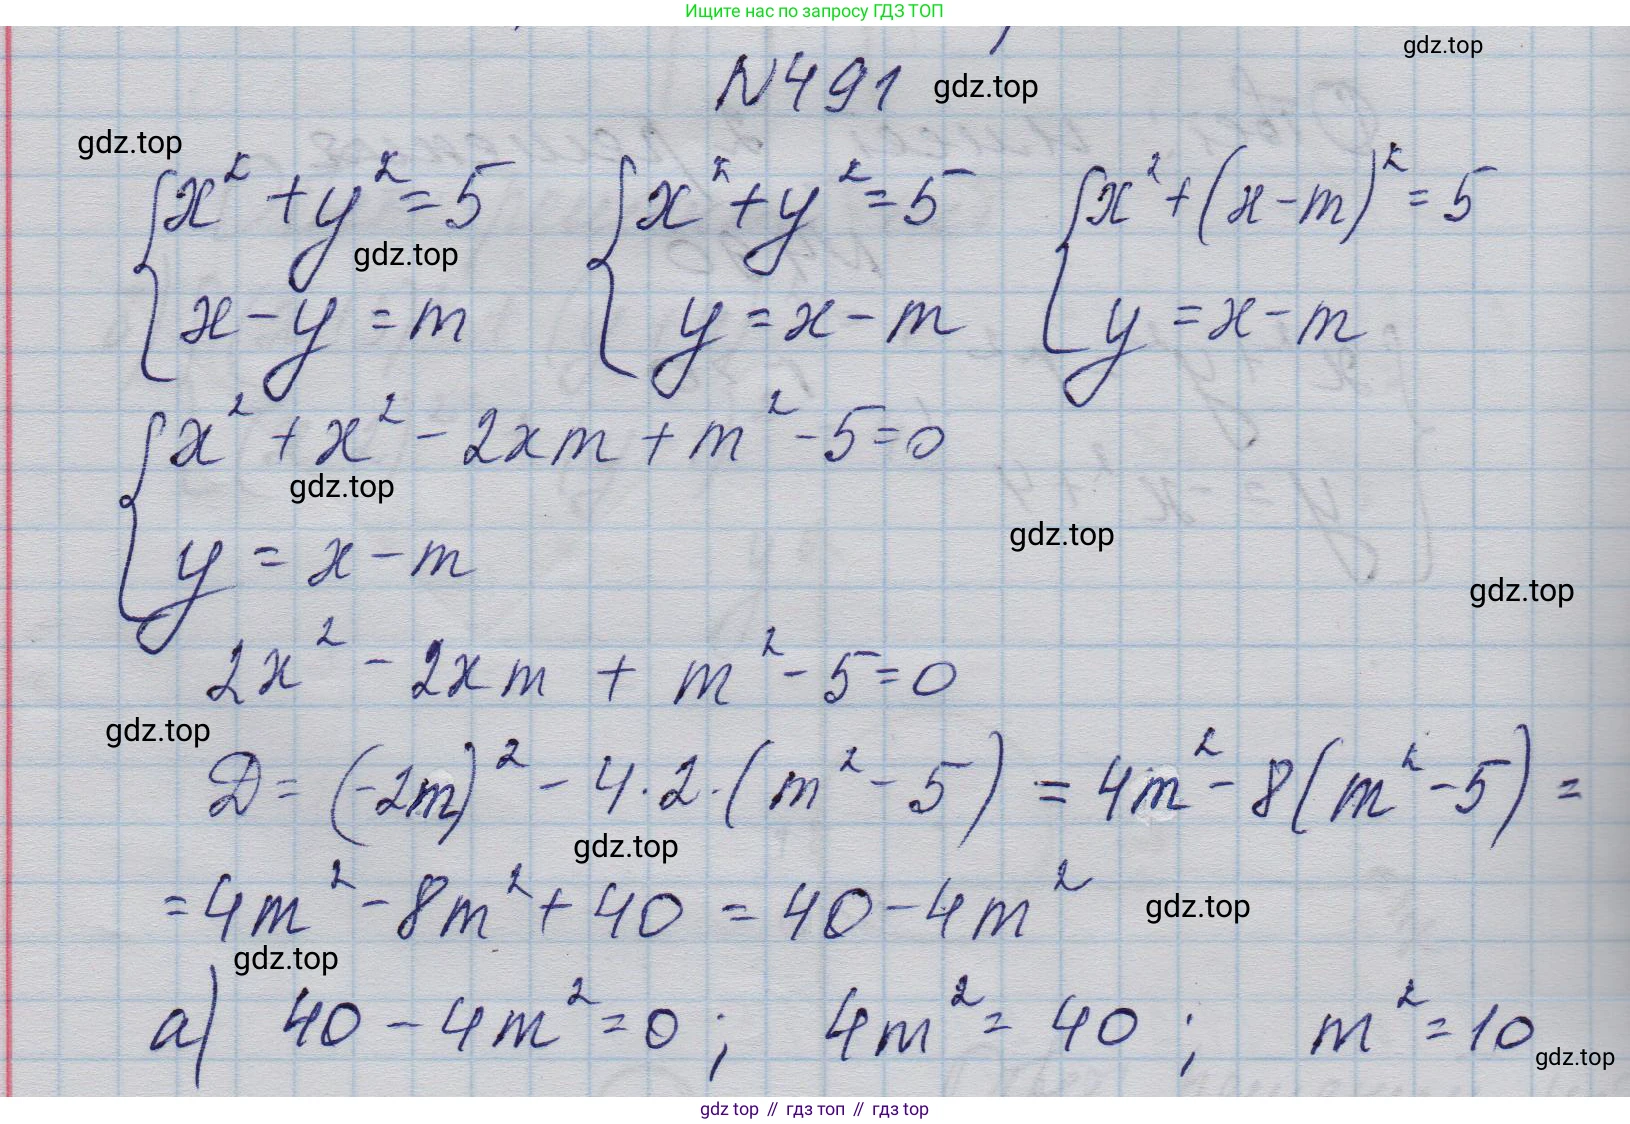 Ищите нас по запросу ГДЗ ТОП
gdz.top
N491 gdz.top
gdz.top
{x² + y² = 5 {x² + y² = 5 {x² + (x - m)² = 5
gdz.top
x - y = m y = x - m y = x - m
{x² + x² - 2xm + m² - 5 = 0
gdz.top
gdz.top
y = x - m
gdz.top
2x² - 2xm + m² - 5 = 0
gdz.top
Д = (-2m)² - 4 · 2 · (m² - 5) = 4m² - 8(m² - 5) =
gdz.top
= 4m² - 8m² + 40 = 40 - 4m² gdz.top
gdz.top
а) 40 - 4m² = 0 ; 4m² = 40 ; m² = 10
gdz.top
gdz top // гдз топ // гдз top